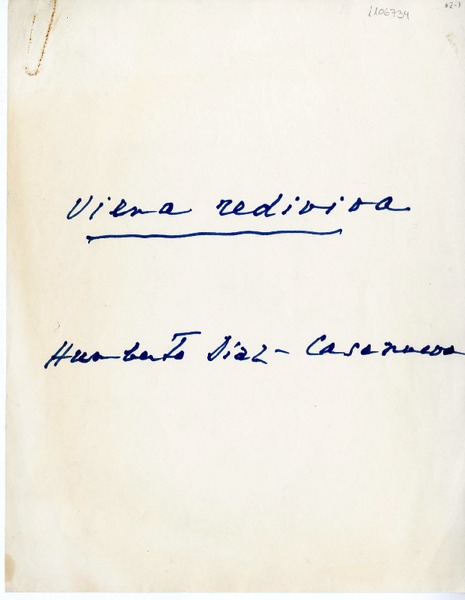 i106734
Viena rediviva
Humberto Díaz-Casanueva